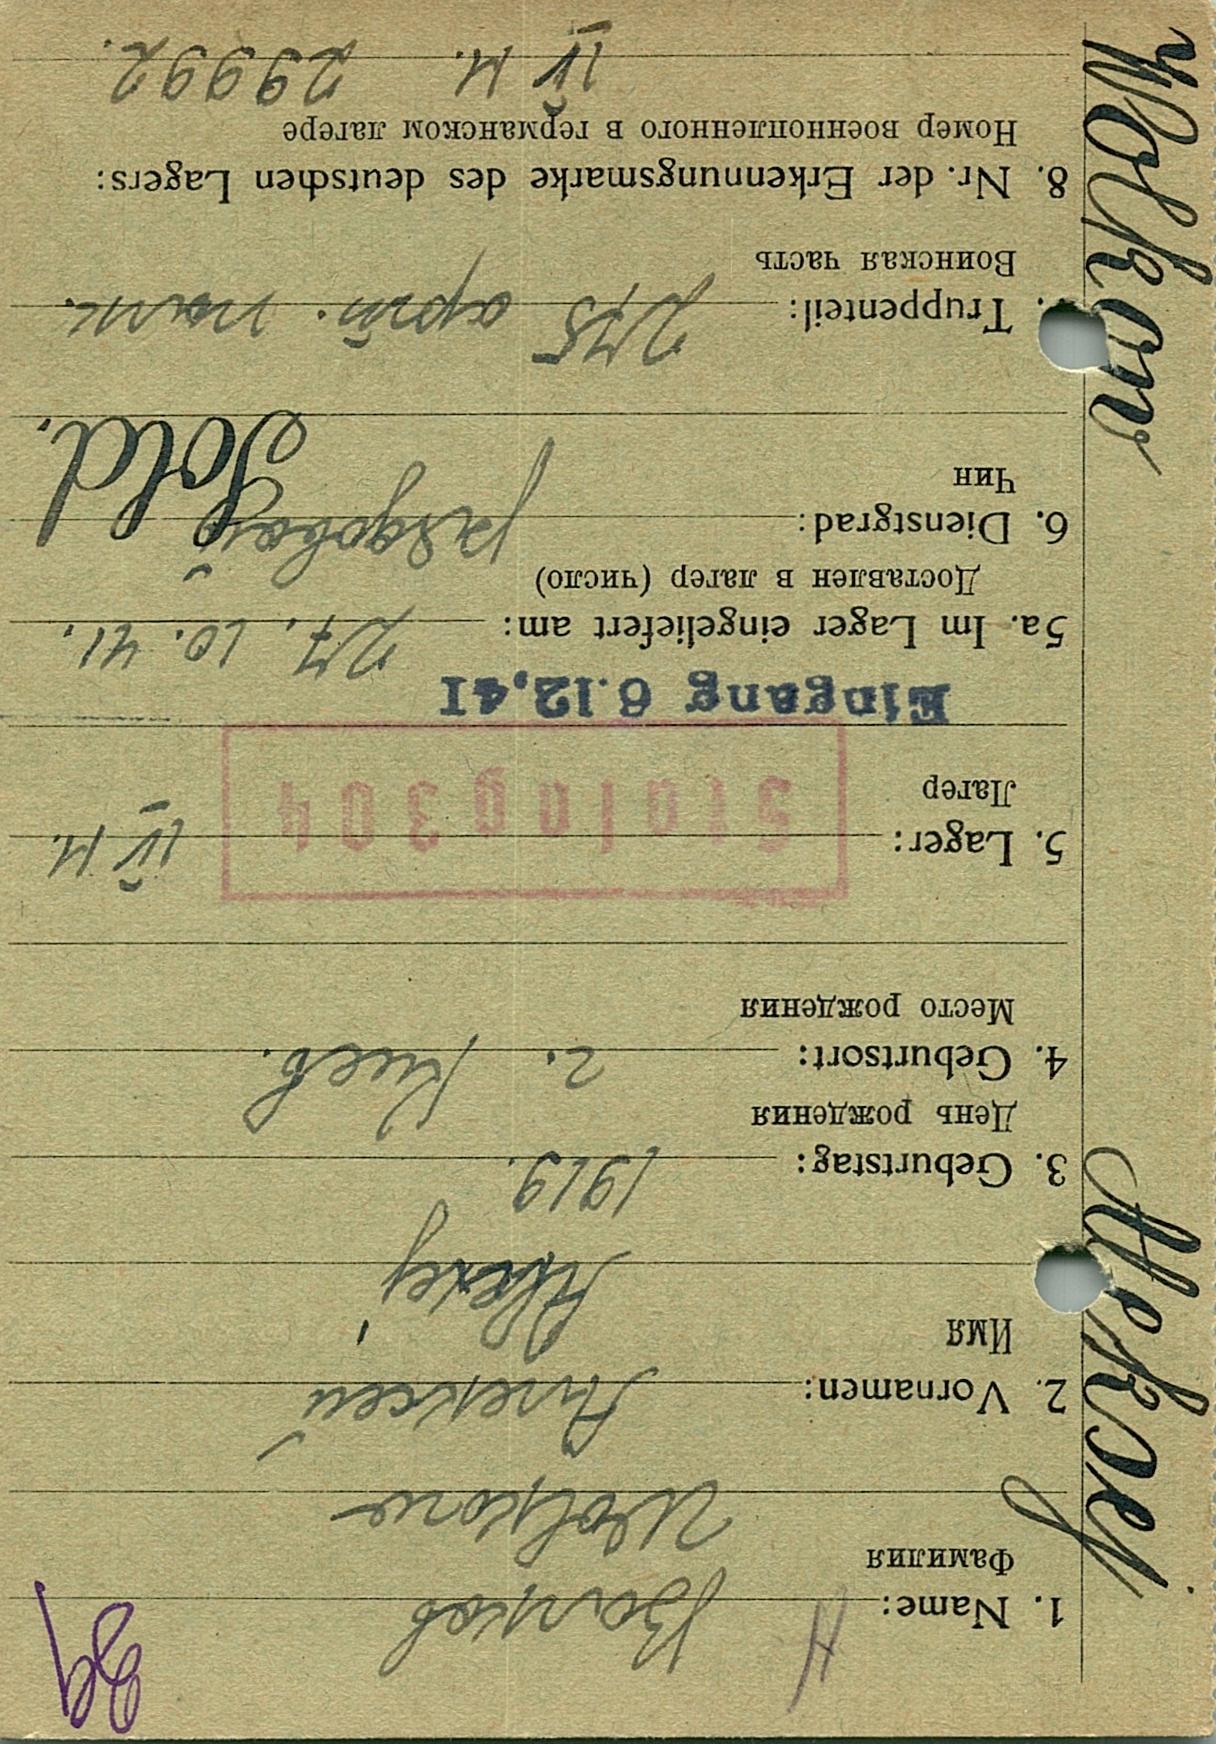 1. Name: Волков
Фамилия
Wolkow
2. Vornamen: Алексей
Имя
Alexej
3. Geburtstag: 1919.
День рождения
4. Geburtsort: г. Киев.
Место рождения
5. Lager: IV H.
Лагер
Stalag 304
Eingang 6.12.41
5a. Im Lager eingeliefert am: 27. 10. 41.
Доставлен в лагер (число)
6. Dienstgrad: рядовой Sold.
Чин
Truppenteil: 275 арт. полк.
Воинская часть
8. Nr. der Erkennungsmarke des deutschen Lagers:
Номер военнопленного в германском лагере
IV H. 29992.
Wolkow
Alekzej